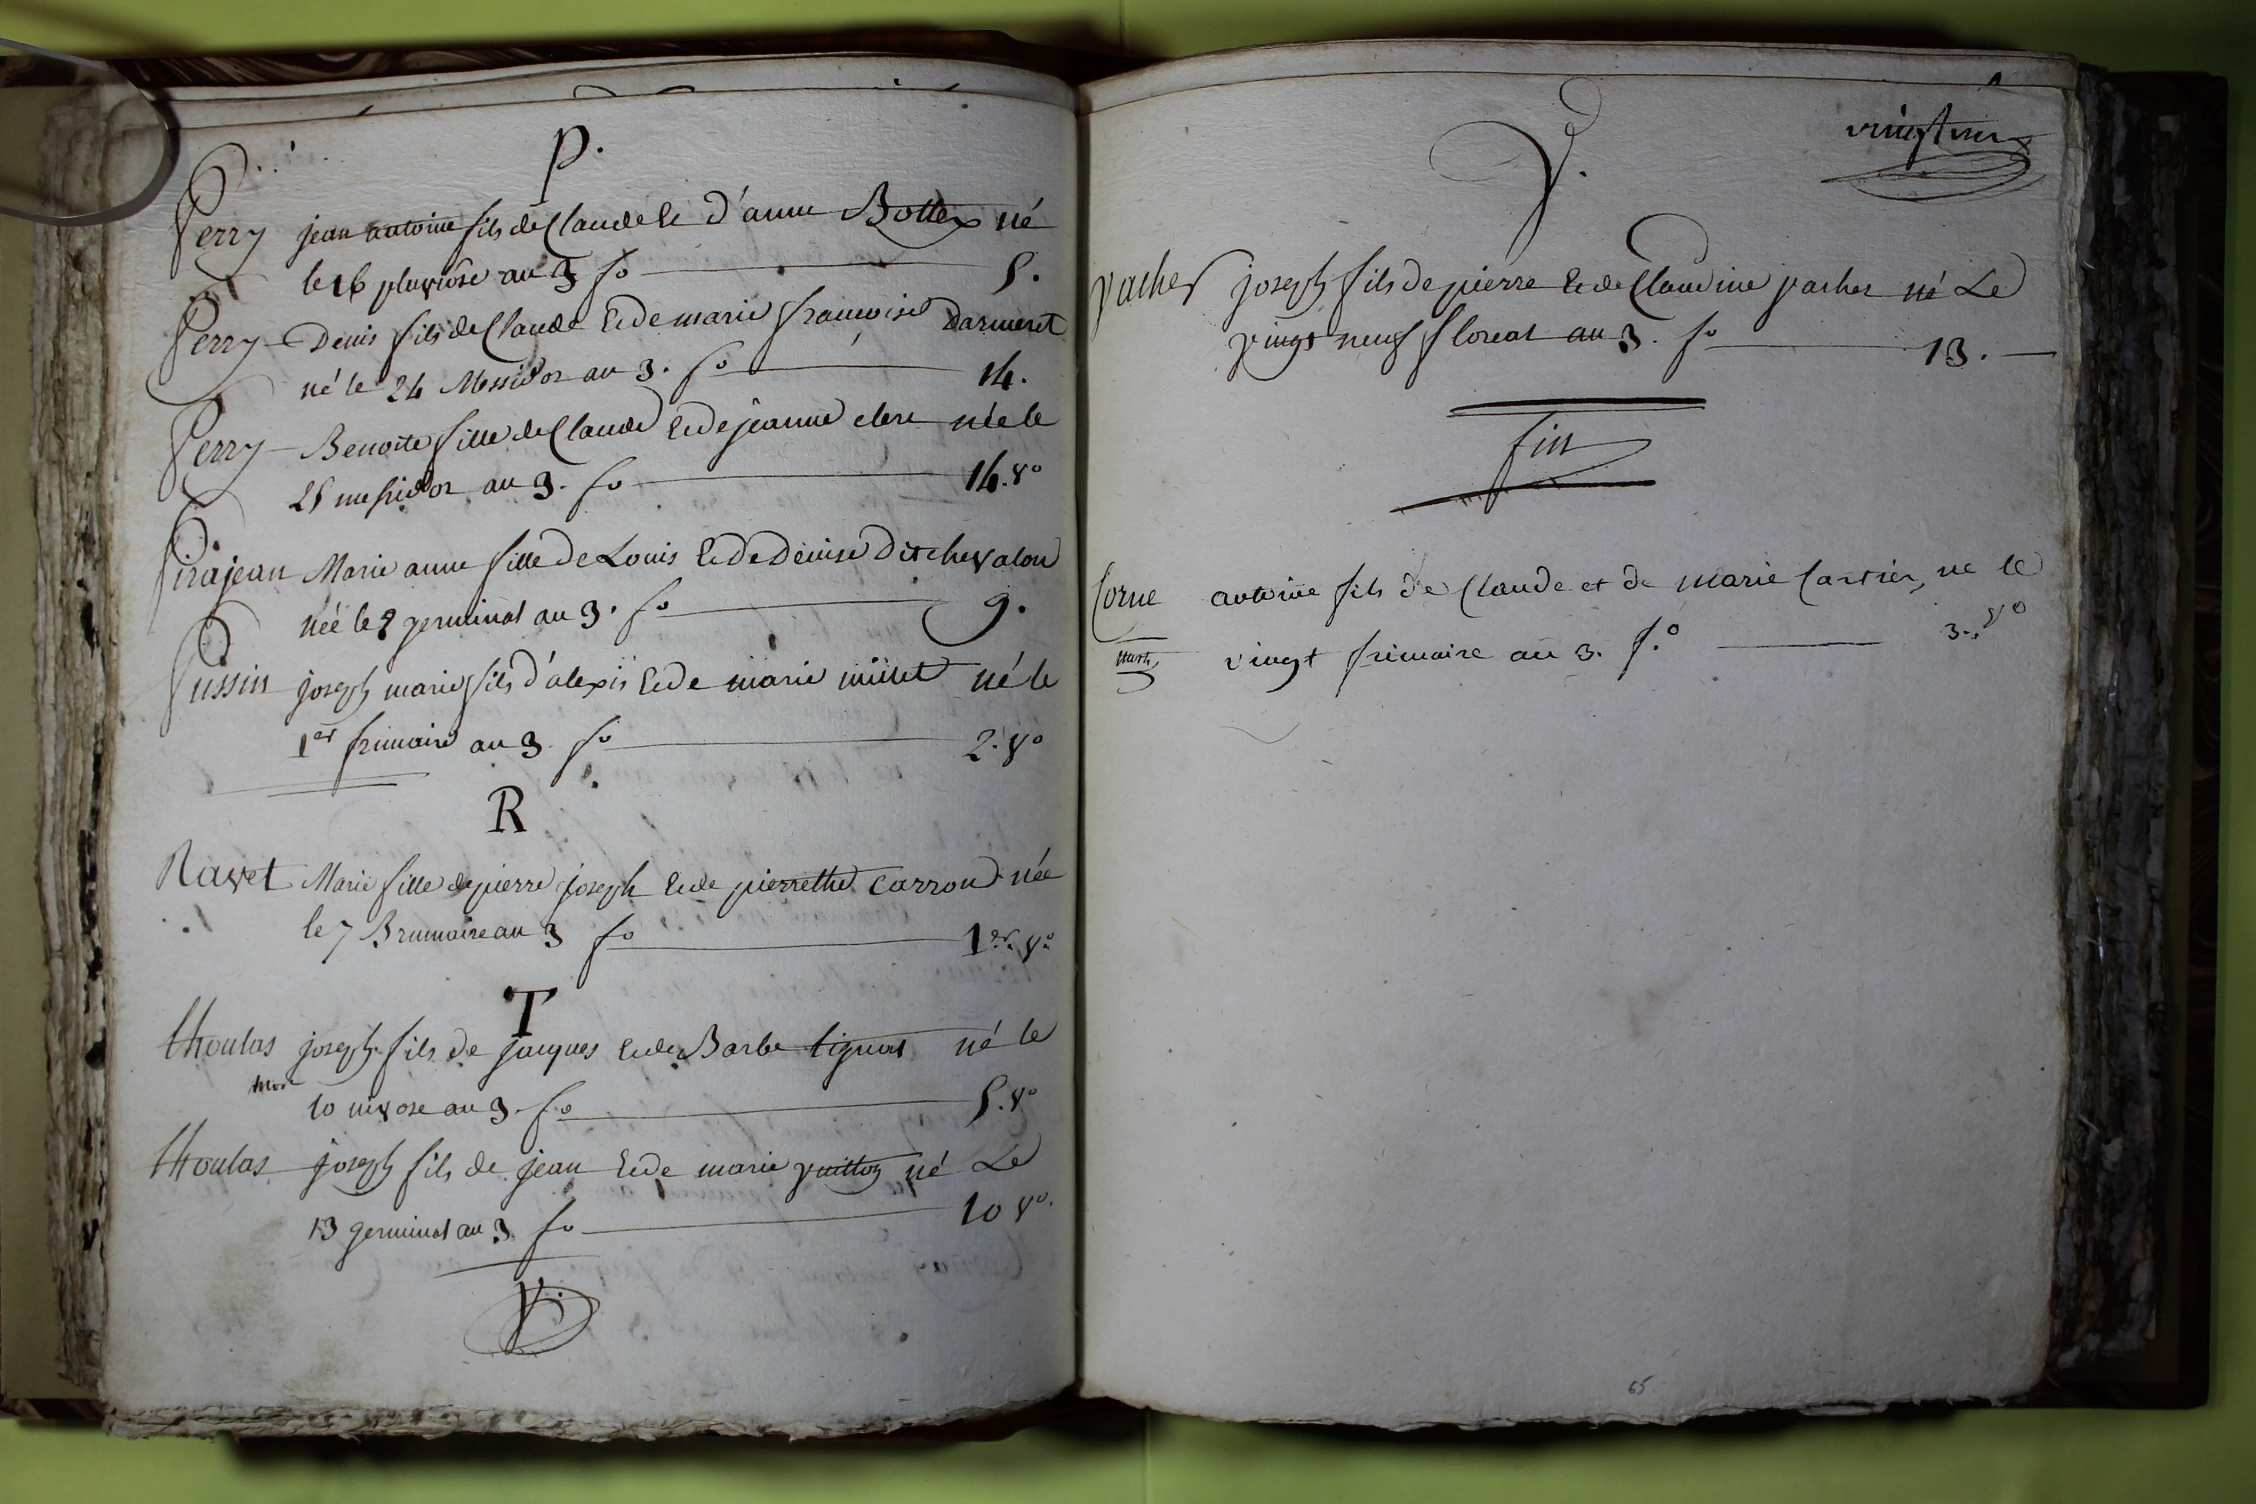 P.
Perry jean antoine fils de Claude Et d'anne Bottex né
le 16 pluviôse an 3 fo 5.
Perry Denis fils de Claude Et de marie francoise Darmeret
né le 24 Messidor an 3. fo 14.
Perry Benoite fille de Claude Et de jeanne clere née le
25 messidor an 3. fo 14. vo
Pirajean Marie anne fille de Louis Et de Denise Ditchevalon
née le 2 germinal an 3. fo 9.
Pussin joseph marie fils d'alexis Et de marie millet né le
1er frimaire an 3. fo 2. vo
R
Ravet Marie fille de pierre joseph Et de pierrette Carron née
le 7 Brumaire an 3 fo 1er. vo
T
thoulas joseph fils de jacques Et de Barbe tignat né le
mort
10 nivose an 3. fo 5. vo
thoulas joseph fils de jean Et de marie vuillot né Le
13 germinal an 3 fo 10 vo.
V.
vingt un
V.
vacher joseph fils de pierre Et de Claudine vacher né Le
vingt neuf floreal an 3. fo 13.
fin
Corne antoine fils de Claude et de marie Cartier, ne le
mort vingt frimaire an 3. fo 3. vo
65